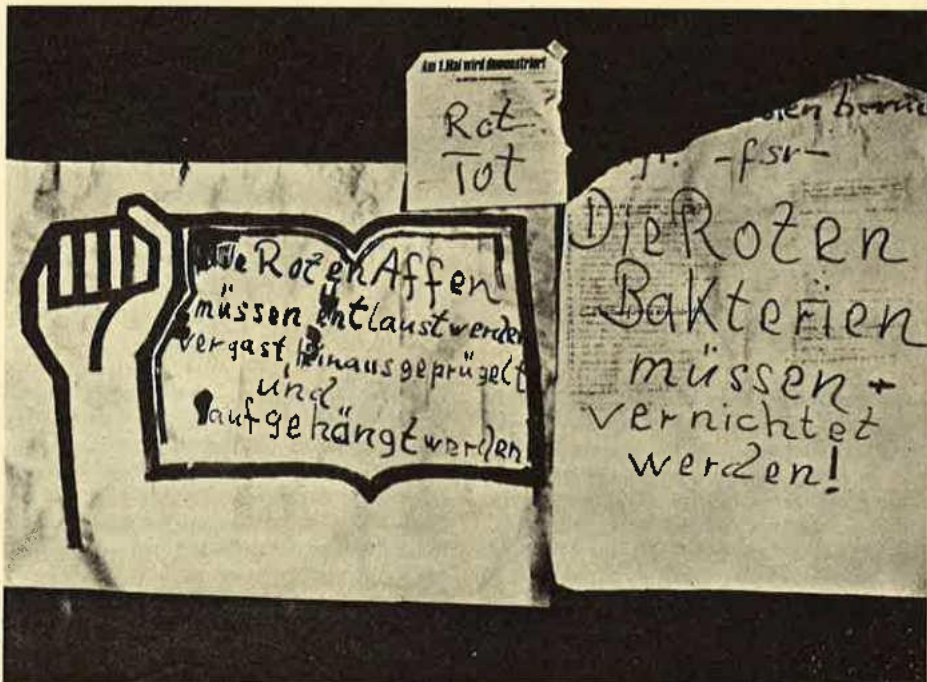 Am 1. Mai wird demonstriert
Rot
Tot
Die Roten Affen
müssen entlaust werden
vergast, hinausgeprügelt
und
aufgehängt werden
-fsr-
Die Roten
Bakterien
müssen
vernichtet
werden!